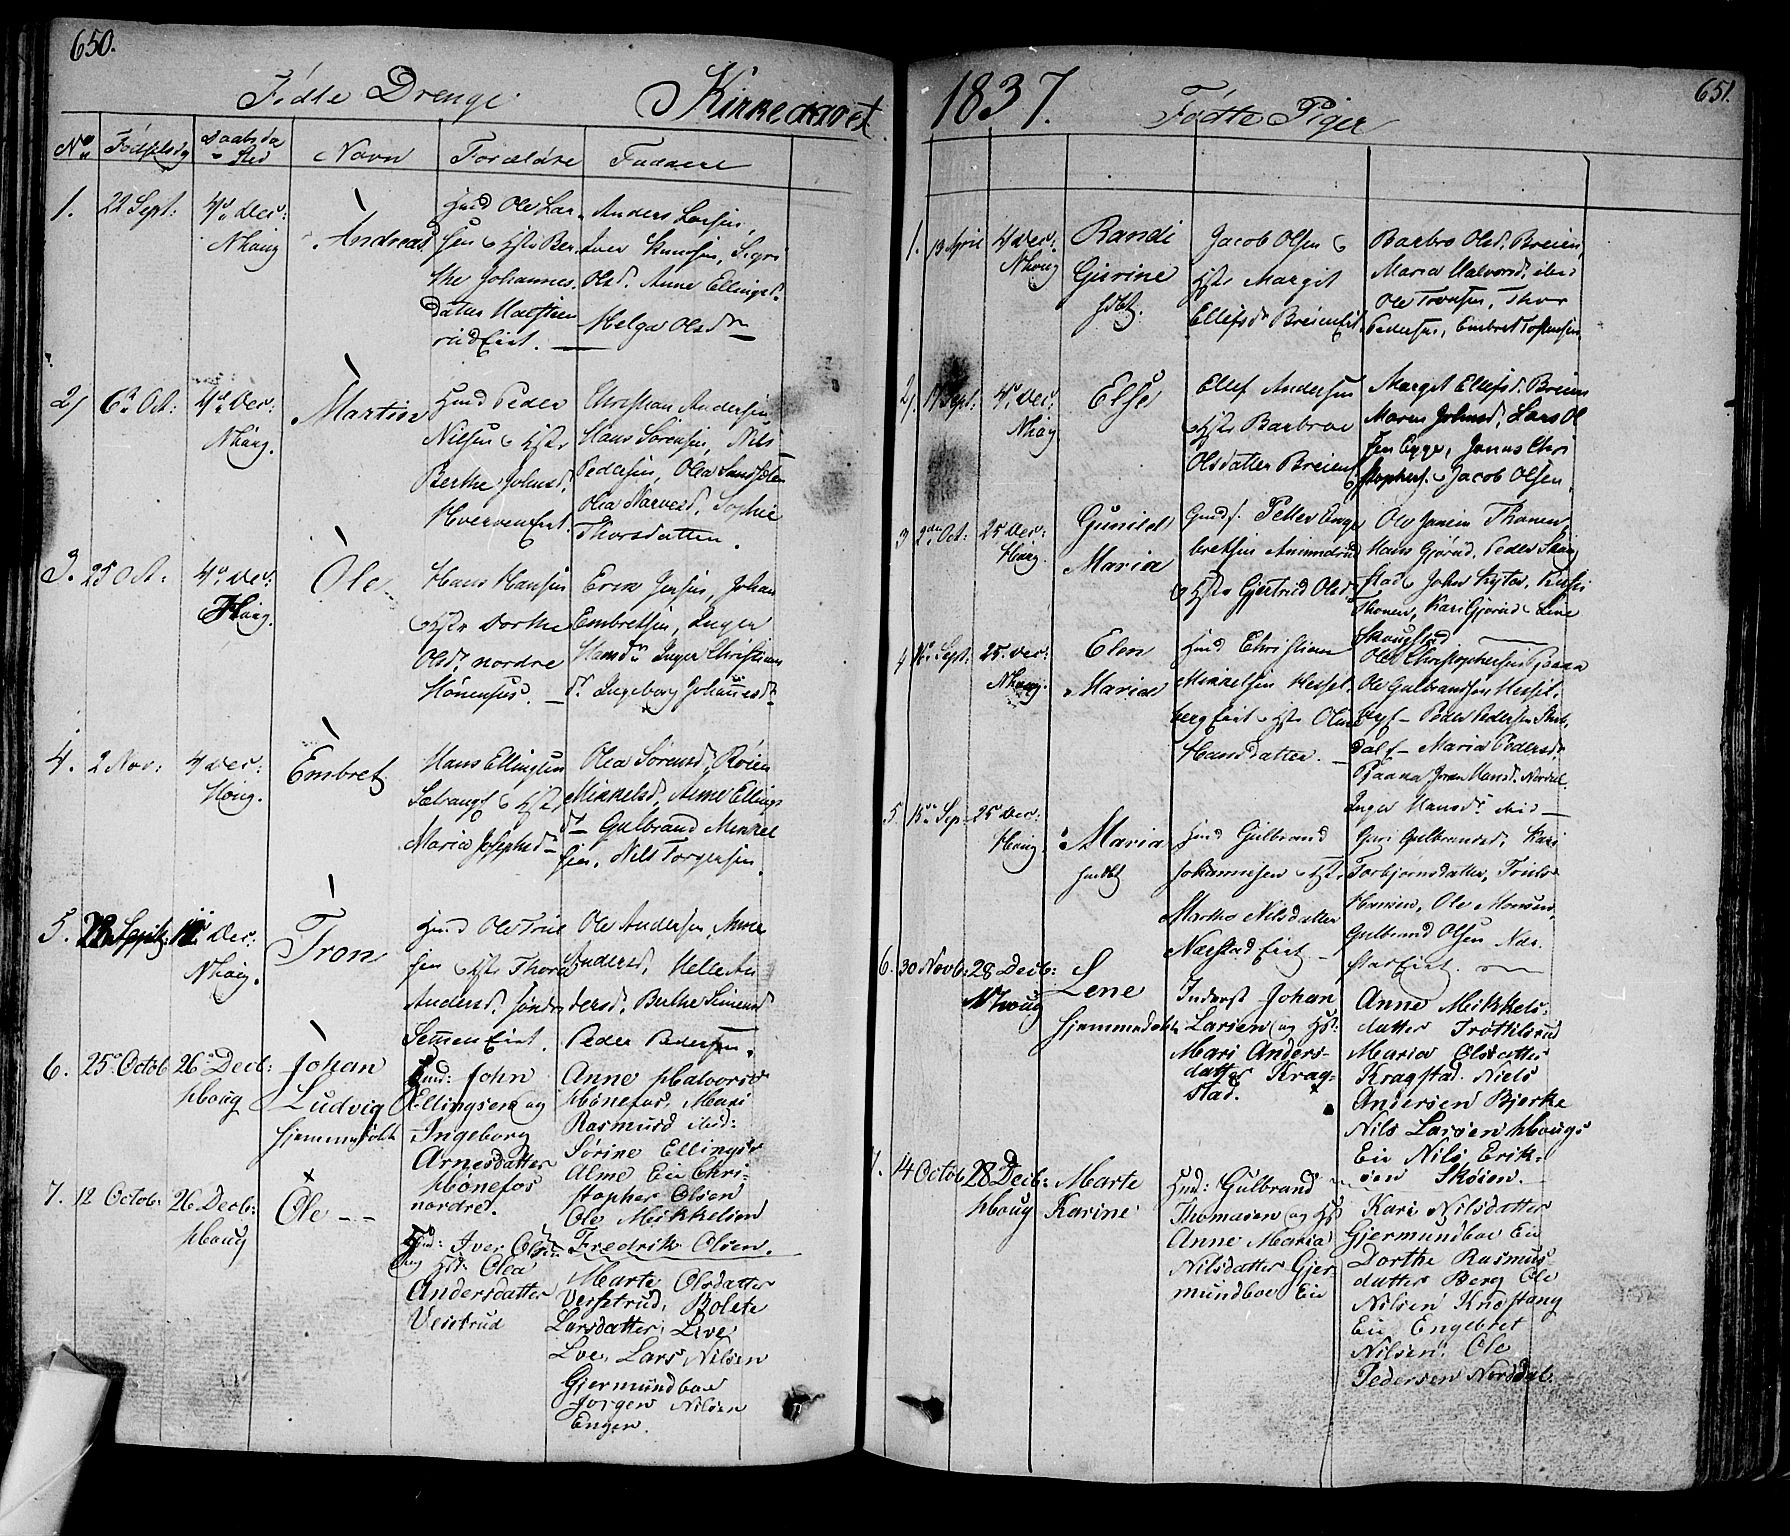 650.
Fødte Drenge
Kirkeaaret
No Fødselsdag Daabsda Sted Navn Forældre Faddere
1. 22 Sept: 4de Dec: Nhoug
Andreas
Huud Ole Lar-
sen & Hstr Ber
the Johannes
datter Halsteen
rud Eiet.
Anders Larsen,
Iver Knudsen, Sigri
Olsd. Anne Ellingsd.
Helga Olsd
2) 6te Oct: 4de Dec: Nhoug.
Martin
Huud Peder
Nilsen & Hstr
Berthe Johnsd.
Hverven Eiet.
Christian Andersen
Hans Sørensen, Nils
Pedersen, Olea
Olea Narvesd. Sophie
Thorsdatter.
3. 25 Oct: 4de Dec: Houg.
Ole
Hans Hansen
& Hstr Dorthe
Olsd. nordre
Hønefos.
Erik Jensen, Johan
Embretsen, Inger
Hansd. Inger Christians
d. Ingeborg Johannesd.
4. 2 Nov: 4 Dec: Houg.
Embret
Hans Ellingsen
& Hstr
Maria Josephsd
Olea Sørensd.
Mikkelsd, Anne Ellings
d. Gulbrand Mikkel
sen, Nils Torgersen.
5. 28 Septbr: Dec: Nhoug.
Tron
Huud Ole Tron
sen & Hstr Thora
Andersd.
Semmen Eiet.
Ole Andersen, Anne
Andersd, Helle An
dersd. Berthe Simensd
Peder Pedersen.
6. 25 Octob 26 Decb: Houg
Johan
Ludvig
hjemmedøbt
Huud: John
Ellingsen og
Ingeborg
Arnesdatter
Hønefos
nordre.
Anne Halvorsd
Hønefos, Mari
Rasmusd ibid:
Sørine Ellingsd
Alme Eie Chri-
stopher Olsen
Ole Mikkelsen
Fredrik Olsen.
7. 12 Octob: 26 Decb: Houg
Ole
Huud: Iver Olsen
og Hstr Olea
Andersdatter
Vesetrud
Marte Olsdatter
Vesetrud, Bolete
Larsdatter, Live
Lve, Lars Nilsen
Gjermundboe
Jørgen Nilsen
Enger.
1837.
Fødte Piger
651.
1. 13 April 4de Dec: Nhoug
Randi
Gurine
hdbt.
Jacob Olsen &
Hstr Margit
Ellefsd. Breien Eiet.
Barbro Olsd. Breien,
Maria Halvorsd. ibid
Ole Tronsen, Thor
Pedersen, Embret Torstensen
2) 17 Sept: 4de Dec: Nhoug
Else
Ellef Andersen
& Hstr Barbroe
Olsdatter Breien
Margit Ellefsd. Breien
Maren Johnsd, Lars Ol
sen Egge, Jonas Chri
stophers. & Jacob Olsen.
3 2den Oct: 25 Dec: Houg.
Gunild
Maria
Gaard. Petter Enge
bretsen
& Hstr Gjertrud Olsd.
Ole Jansen Thonen,
Hans Gjørud, Peder Skoug
stad & John
Thonen, Kari Gjørud & Lene
Skougstad
4 Sept: 25 Dec: Nhoug.
Elen
Maria
Huud Christian
Mikkelsen Hessel
berg Eiet & Hstr Oline
Hansdatter.
Ole Christophersen Paana
Ole Gulbrandsen Hessel,
berg Peder Pedersen
dal Maria Pedersd.
Paana Joran Hansd. Nordal
Inger Hansd. ibid
5. 15de Sep. 25 Dec: Houg.
Maria
hmdbt
Huud Gulbrand
Johannesen & Hstr
Marthe Nilsdatter
Nærstad Eiet.
Guri Gulbrandsd. Kari
Torbjørnsdatter, Truls
Hansen, Ole Monsen,
Gulbrand Olsen Nær
stad Eiet.
6. 30 Novb: 28 Decb: Nhoug
Lene
hjemmedøbt
Inderst Johan
Larsen og Hst:
Mari Anders-
datter Krag-
stad.
Anne Mikkels-
datter Trøttelsrud
Maria Olsdatter
Kragstad. Niels
Andersen Bjerke
Nils Larsen Hougs
Eie Nils Erik-
sen Skøien.
7. 14 Octob 28 Decb: Houg
Marte
Karine
Hud: Gulbrand
Thomasen og Hst
Anne Maria
Nilsdatter Gjer
mundboe Eie
Kari Nilsdatter
Gjermundboe Eie
Dorthe Rasmus
datter Berg Ole
Nilsen Knestang
Eie Engebret
Nilsen, Ole
Pedersen Norddal